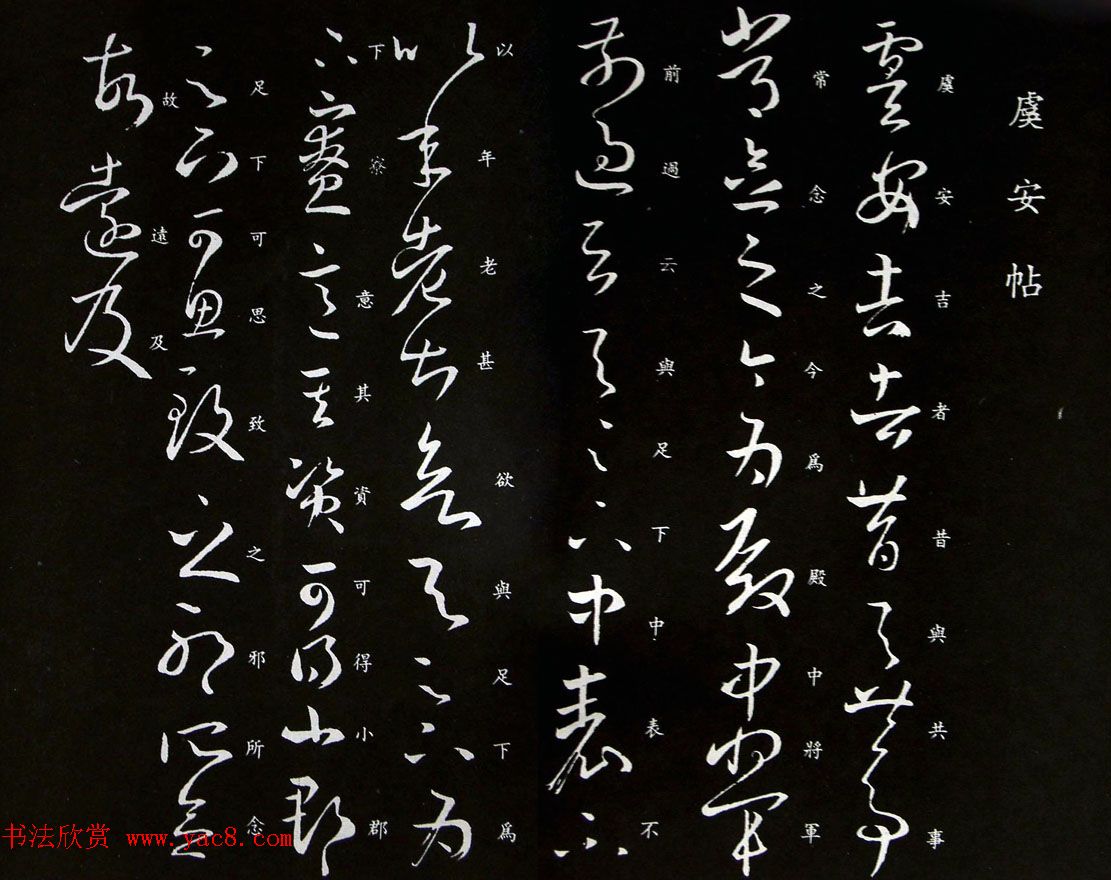 虞安帖
虞安吉者昔與共事
常念之今爲殿中將軍
前過云與足下中表不
以年老甚欲與足下爲
下寮意其資可得小郡
足下可思致之邪所念
故遠及
书法欣赏 www.yac8.com